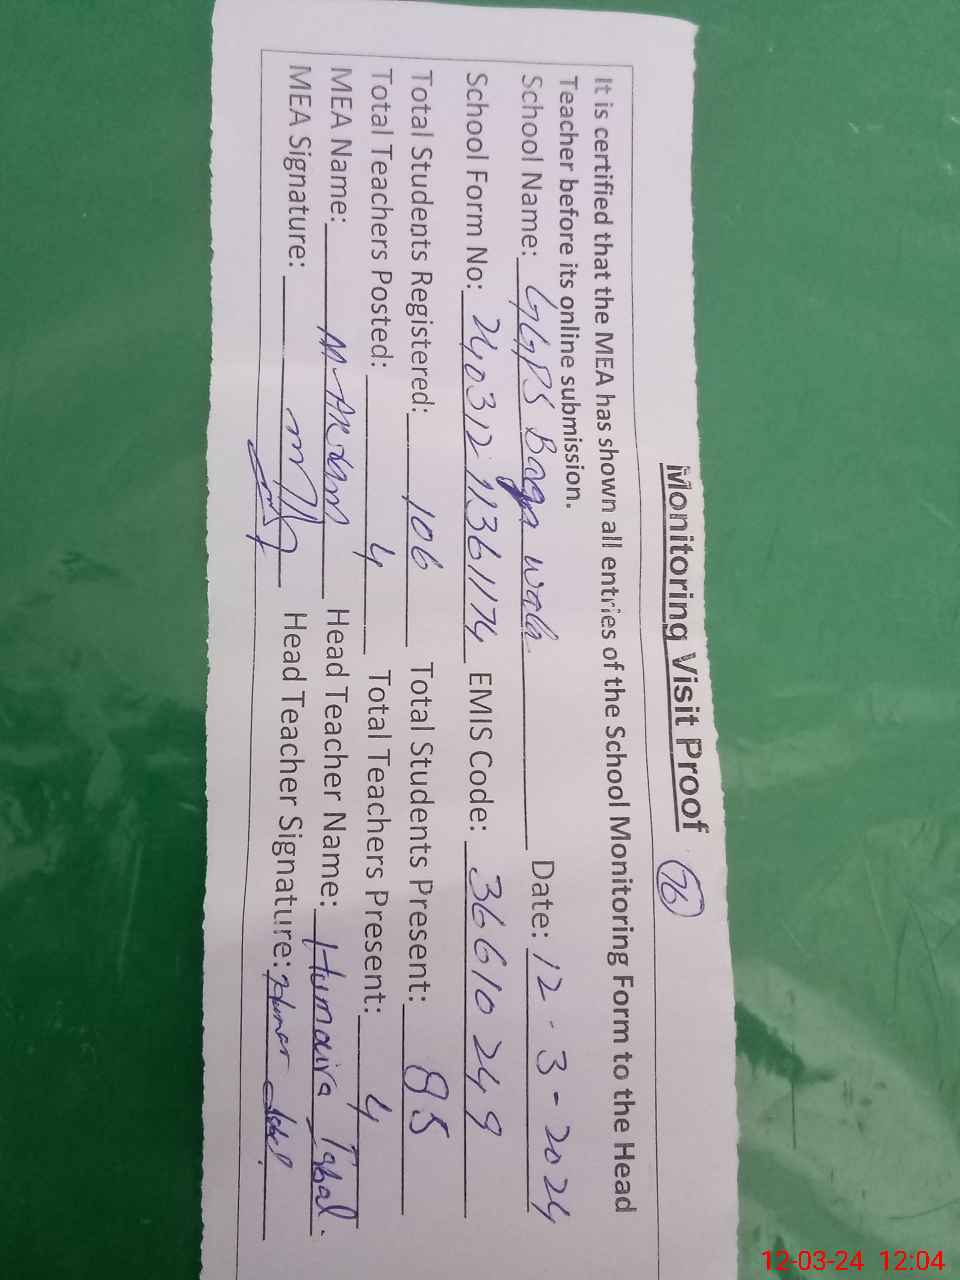 Monitoring Visit Proof 76
It is certified that the MEA has shown all entries of the School Monitoring Form to the Head
Teacher before its online submission.
School Name: GGPS Baga wala Date: 12-3-2024
School Form No: EMIS Code: 36610249
Total Students Registered: 106 Total Students Present: 85
Total Teachers Posted: 4 Total Teachers Present: 4
MEA Name: M-Akram Head Teacher Name: Humaira Iqbal.
MEA Signature: Head Teacher Signature:
12-03-24 12:04